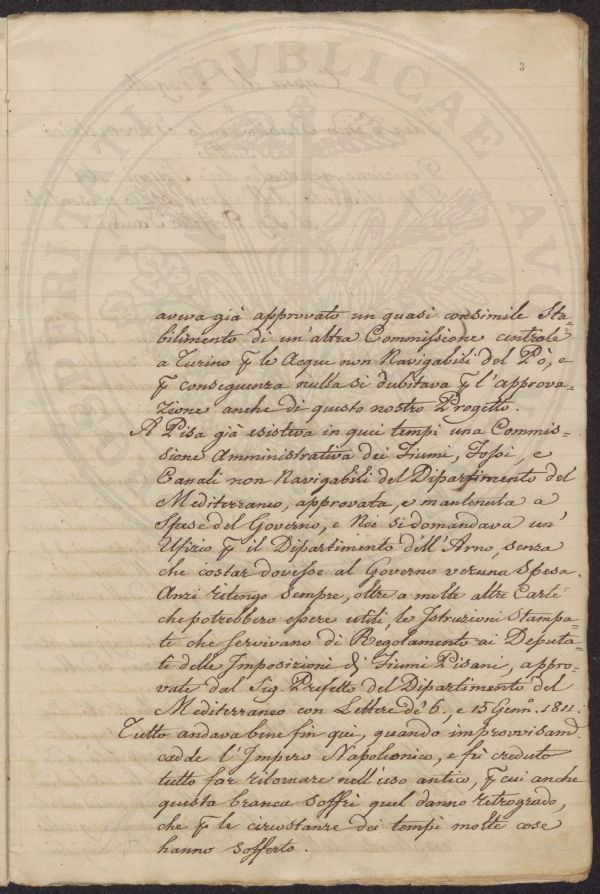 3
aveva già approvato un quasi consimile Sta=
bilimento di un'altra Commissione centrale
a Turino ꝑ le Acque non Navigabili del Pò, e
ꝑ conseguenza nulla si dubitava ꝑ l'approva=
zione anche di questo nostro Progetto.
A Pisa già esisteva in quei tempi una Commis=
sione Amministrativa dei Fiumi, Fossi, e
Canali non Navigabili del Dipartimento del
Mediterraneo, approvata, e mantenuta a
Spese del Governo, e Noi si domandava un'
Ufizio ꝑ il Dipartimento dell'Arno, senza
che costar dovesse al Governo veruna spesa.
Anzi ritengo sempre, oltre a molte altre Carte
che potrebbero essere utili, le Istruzioni Stampa=
te che servivano di Regolamento ai Deputa=
ti delle Imposizioni di Fiumi Pisani, appro=
vate dal Sig. Prefetto del Dipartimento del
Mediterraneo con Lettere de' 6. e 15 Genn.º 1811.
Tutto andava bene fin qui, quando improvvisam.
cadde l'Impero Napoleonico, e fù creduto
tutto far ritornare nell'uso antico, ꝑ cui anche
questa branca soffrì quel danno retrogrado,
che ꝑ le circostanze dei tempi molte cose
hanno sofferto.
PRITATI PVBLICAE AVC